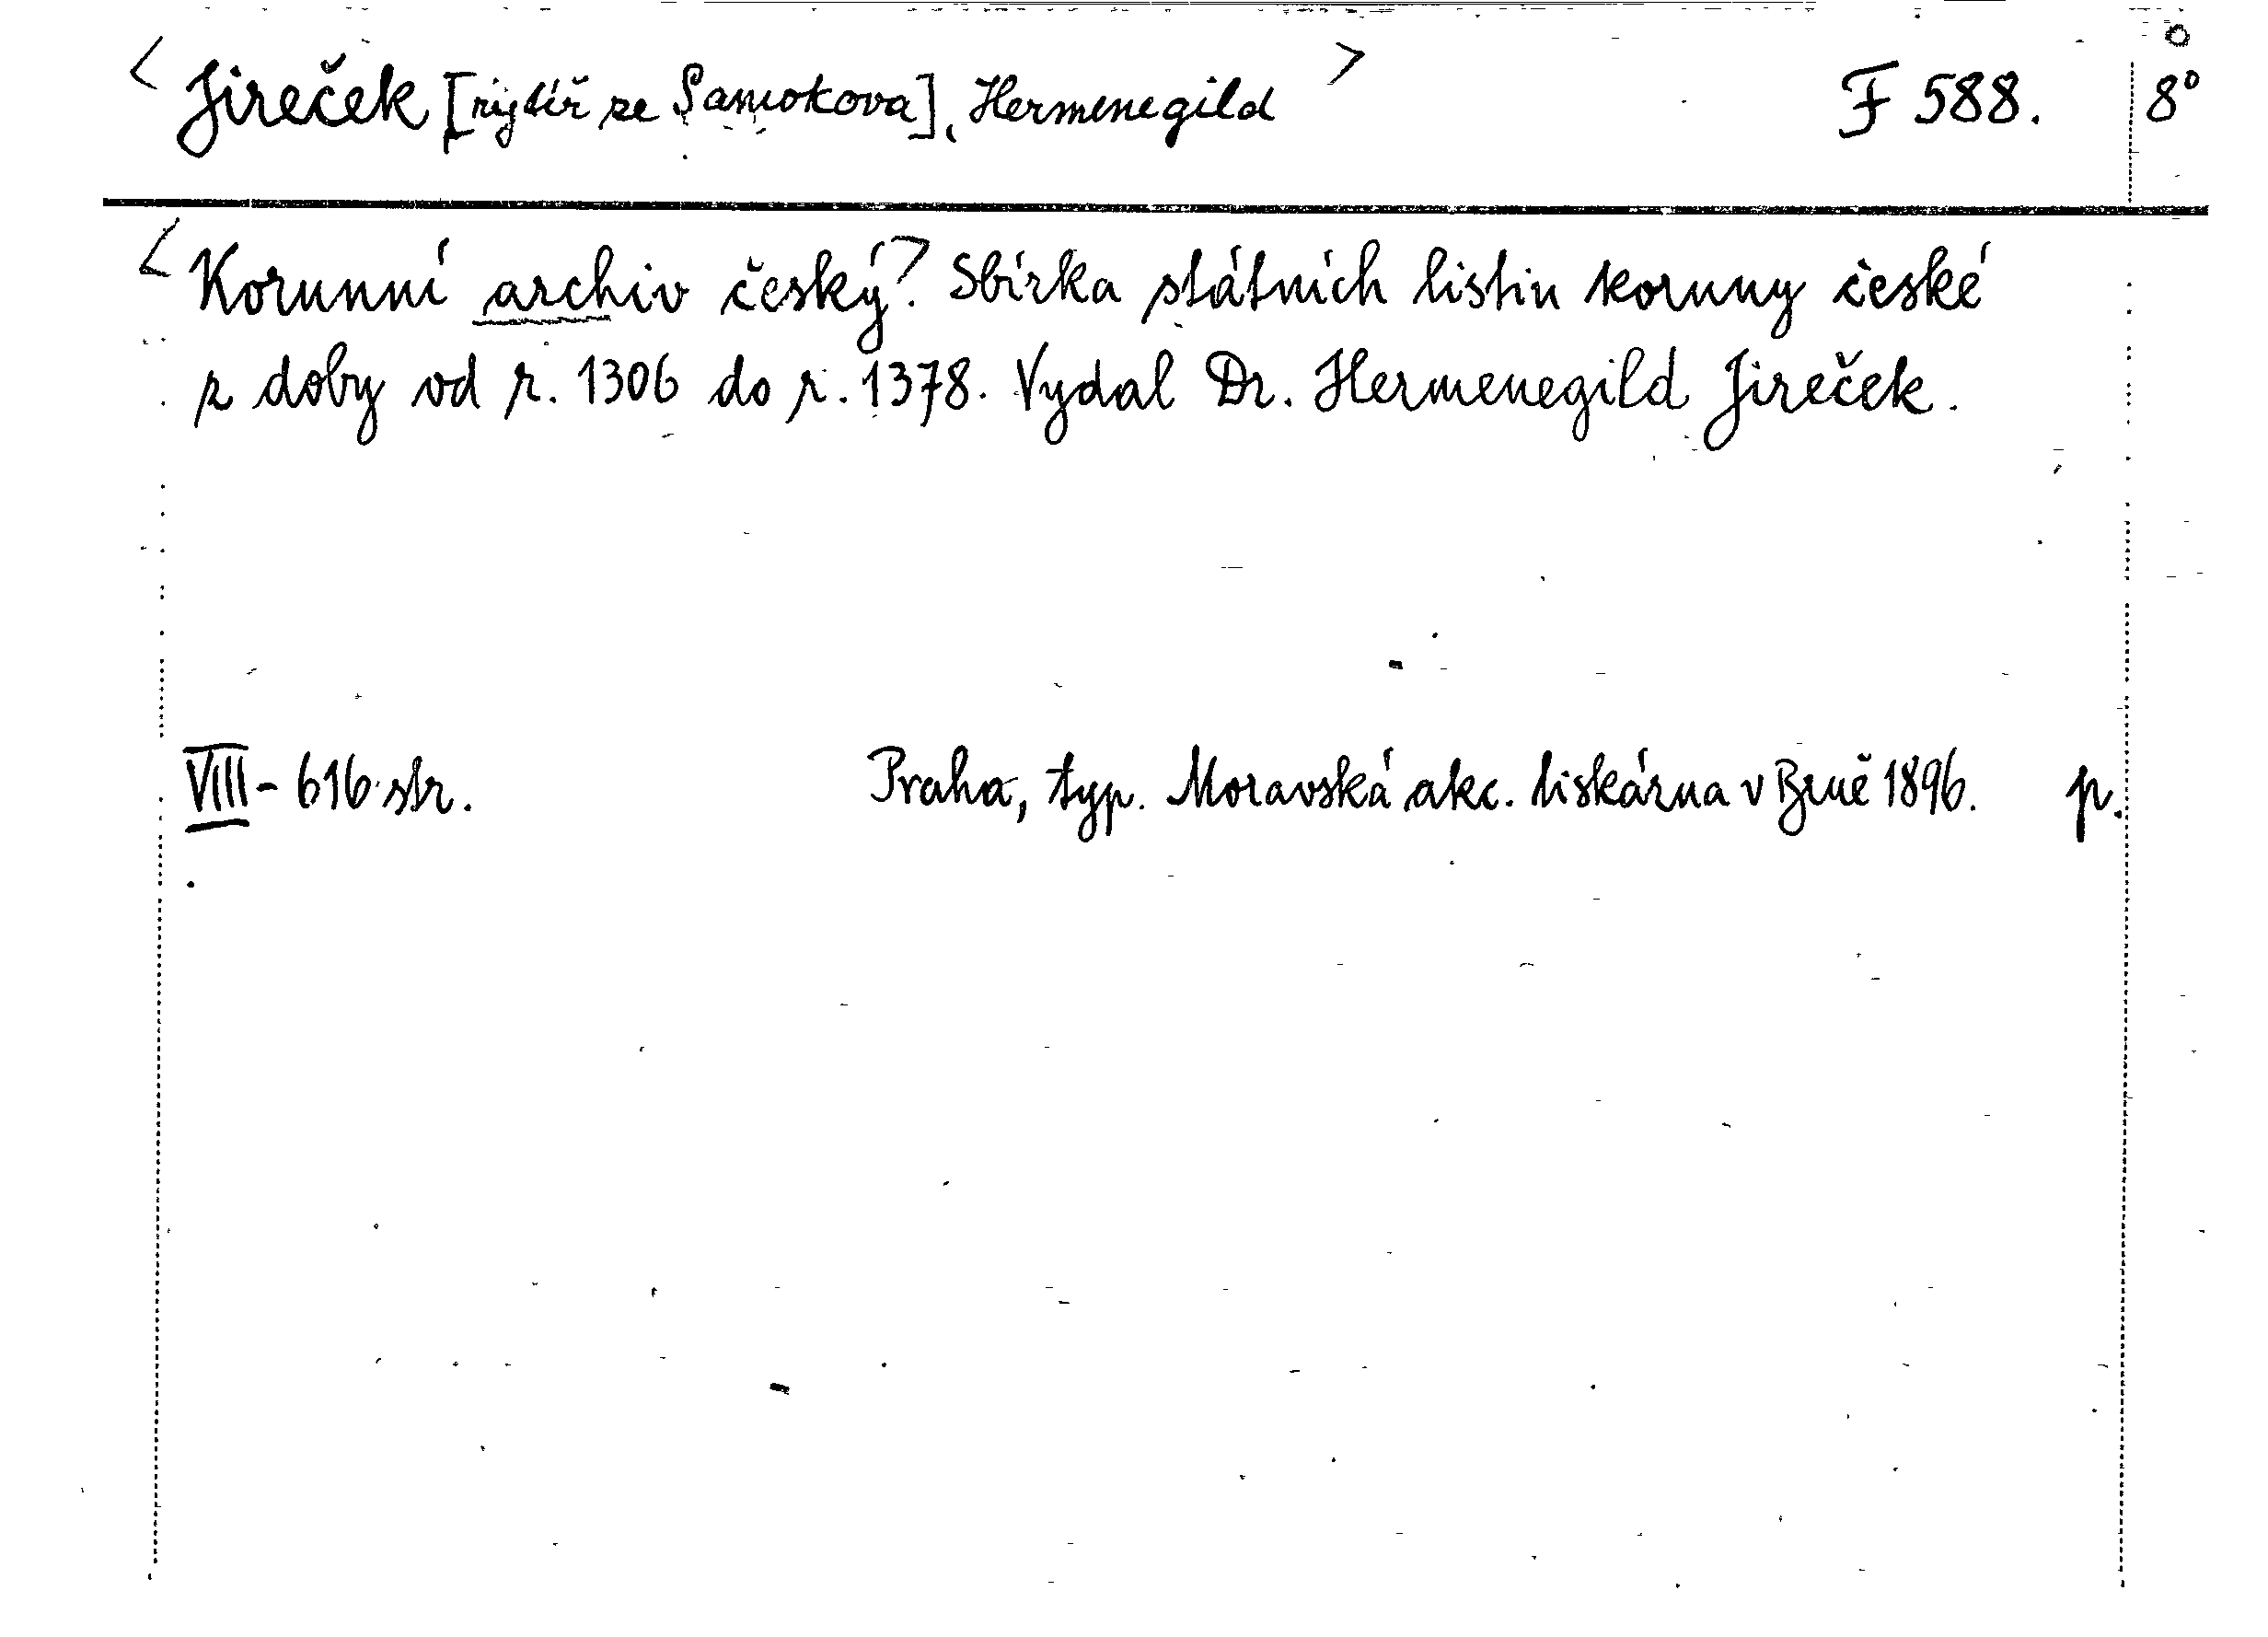 < Jireček [rytíř ze Samokova], Hermenegild > F 588. 8°
< Korunní archiv český.> Sbírka státních listin koruny české
z doby od r. 1306 do r. 1378. Vydal Dr. Hermenegild Jireček.
VIII - 616 str. Praha, typ. Moravská akc. tiskárna v Brně 1896. p.